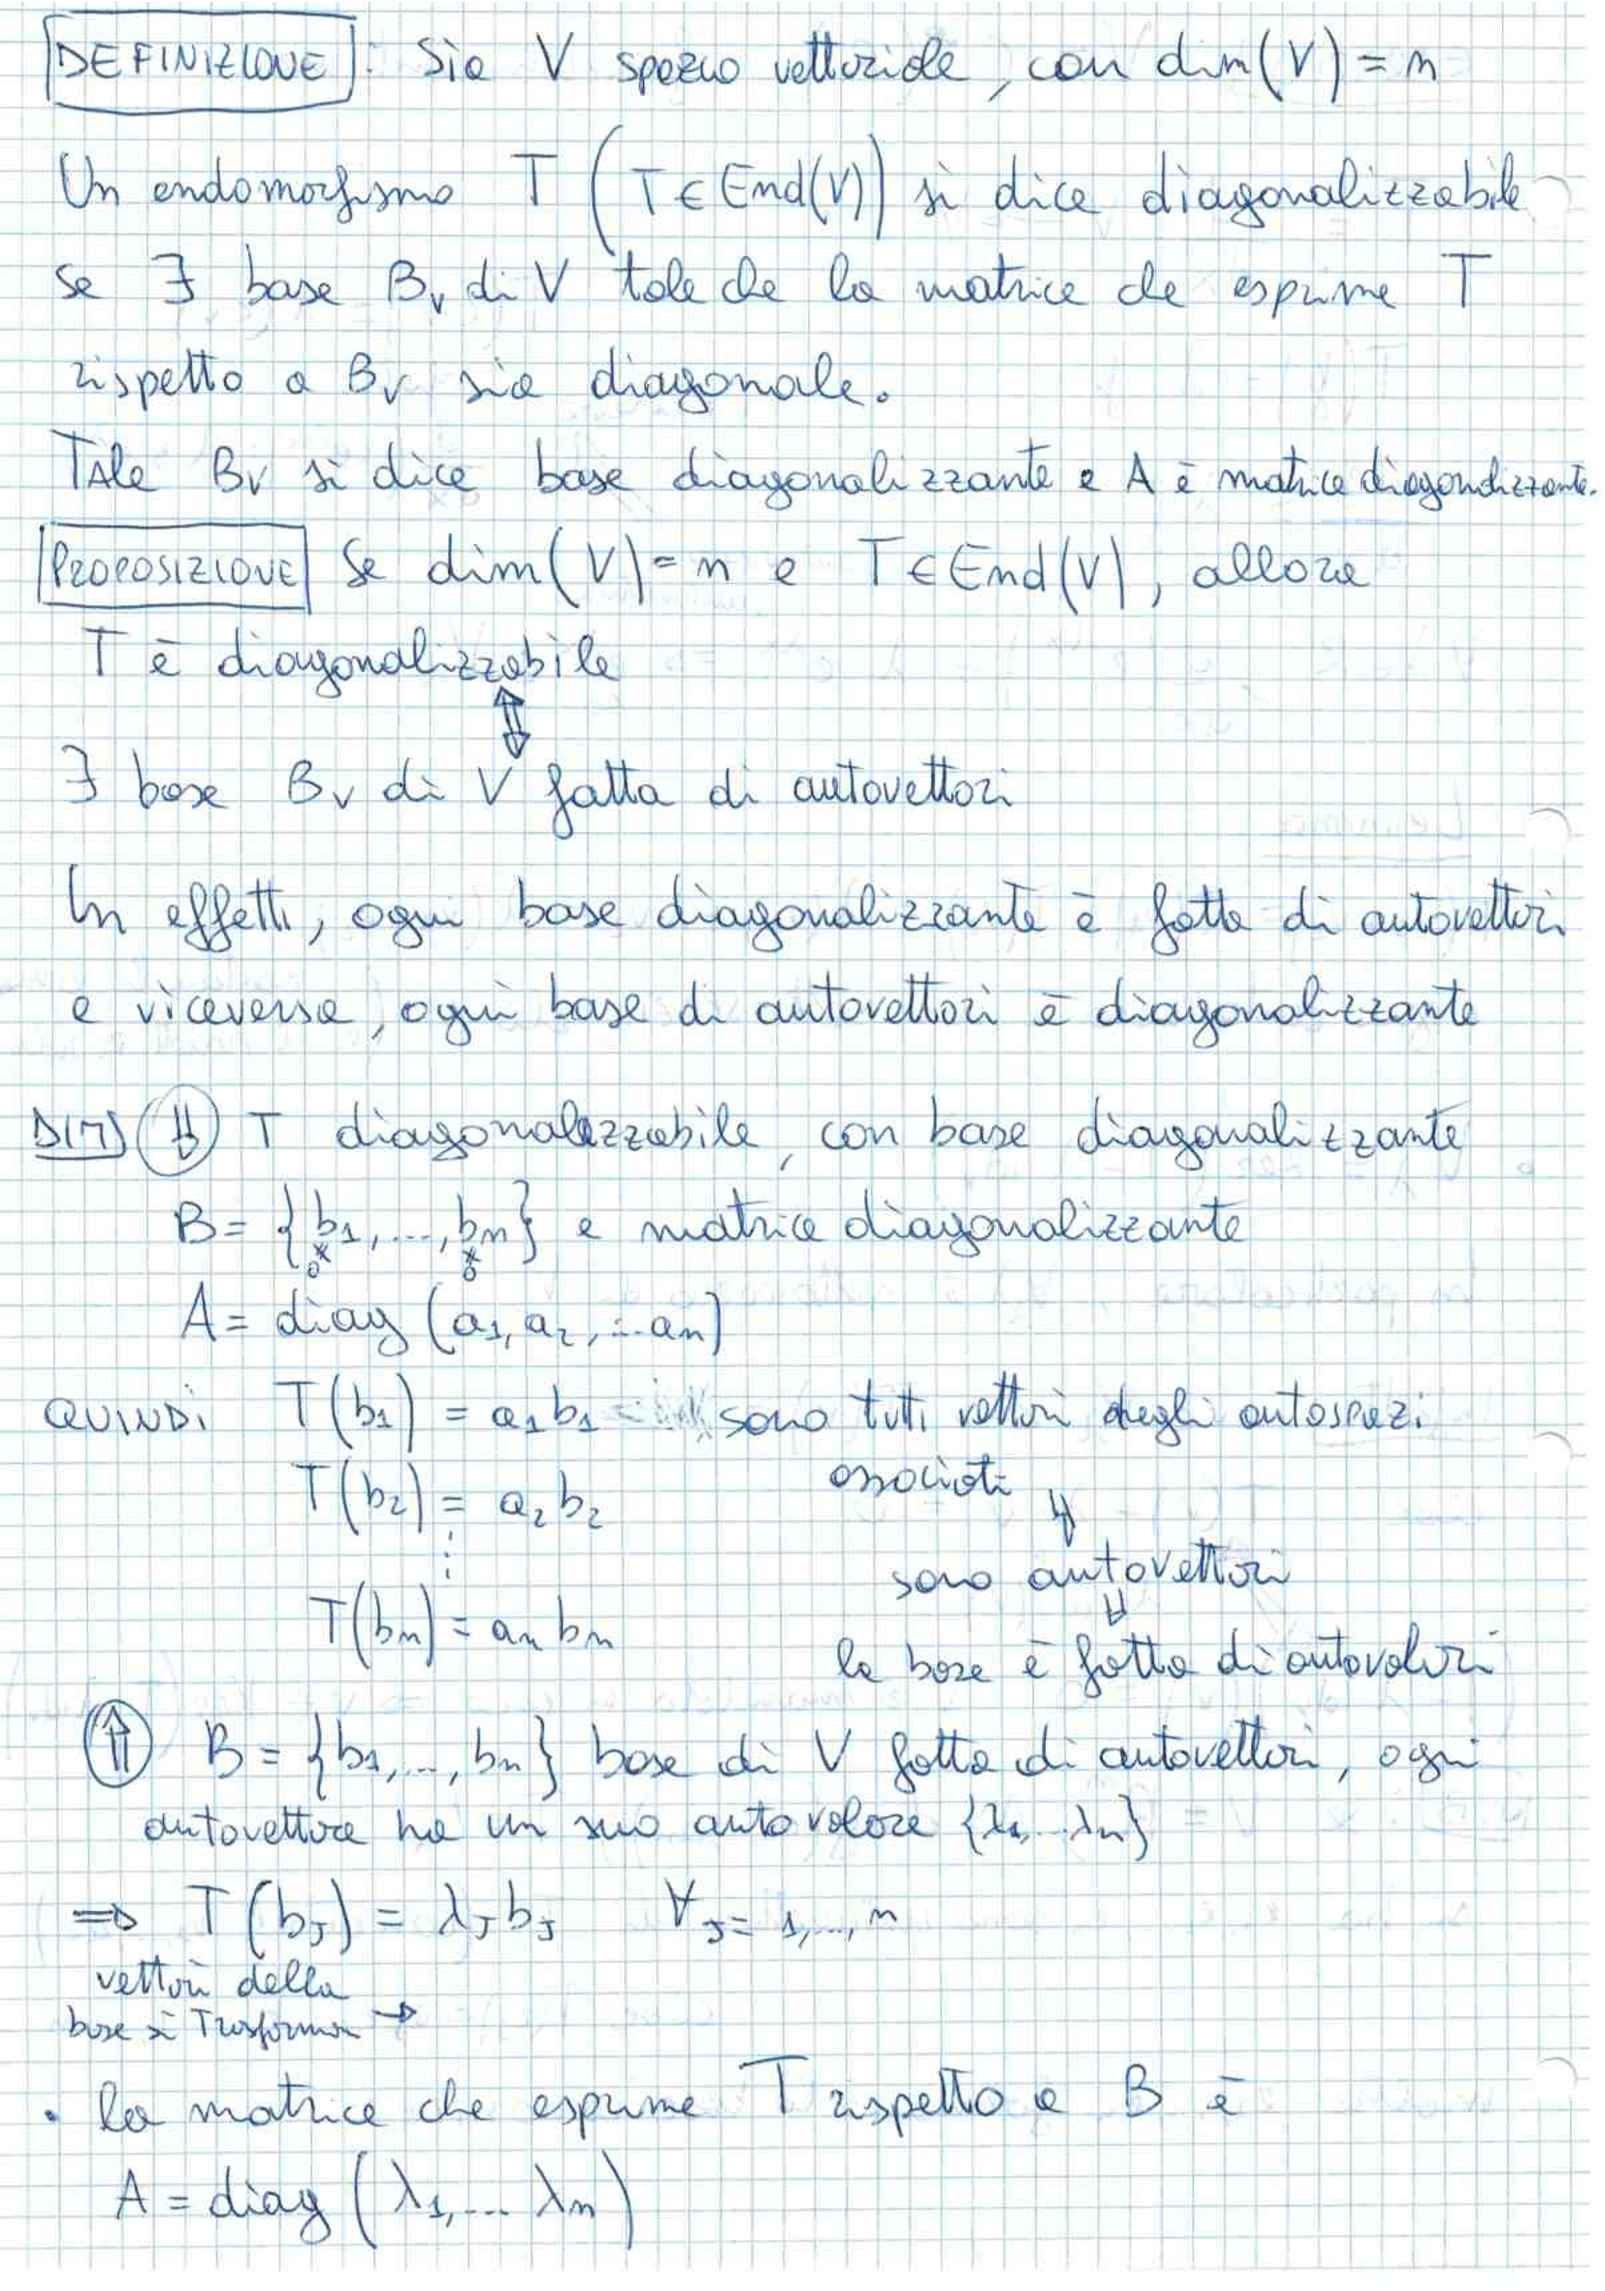 DEFINIZIONE: Sia V spazio vettoriale, con dim(V) = n
Un endomorfismo T (T ∈ End(V)) si dice diagonalizzabile
se ∃ base Bv di V tale che la matrice che esprime T
rispetto a Bv sia diagonale.
TAle Bv si dice base diagonalizzante e A è matrice diagonalizzante.
PROPOSIZIONE Se dim(V) = n e T ∈ End(V), allora
T è diagonalizzabile
⇕
∃ base Bv di V fatta di autovettori
In effetti, ogni base diagonalizzante è fatta di autovettori
e viceversa, ogni base di autovettori è diagonalizzante
DIM ⇓ T diagonalizzabile, con base diagonalizzante
B = {b1, ..., bn} e matrice diagonalizzante
≠ ≠
0 0
A = diag (a1, a2, ... an)
QUINDI T(b1) = a1 b1 sono tutti vettori degli autospazi
T(b2) = a2 b2 associati
⋮ ⇓
sono autovettori
T(bn) = an bn ⇓
la base è fatta di autovalori
⇑ B = {b1, ..., bn} base di V fatta di autovettori, ogni
autovettore ha un suo autovalore {λ1, ... λn}
⇒ T(bJ) = λJ bJ ∀ J = 1, ..., n
vettori della
base si Trasforman →
• la matrice che esprime T rispetto a B è
A = diag (λ1, ... λn)